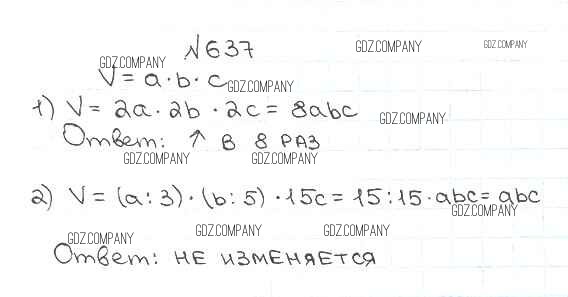 №637
GDZ.COMPANY GDZ.COMPANY GDZ.COMPANY
V = a · b · c GDZ.COMPANY
1) V = 2a · 2b · 2c = 8abc GDZ.COMPANY
Ответ: ↑ в 8 РАЗ
GDZ.COMPANY GDZ.COMPANY
2) V = (a : 3) · (b : 5) · 15c = 15 : 15 · abc = abc
GDZ.COMPANY
GDZ.COMPANY GDZ.COMPANY GDZ.COMPANY
Ответ: НЕ ИЗМЕНЯЕТСЯ